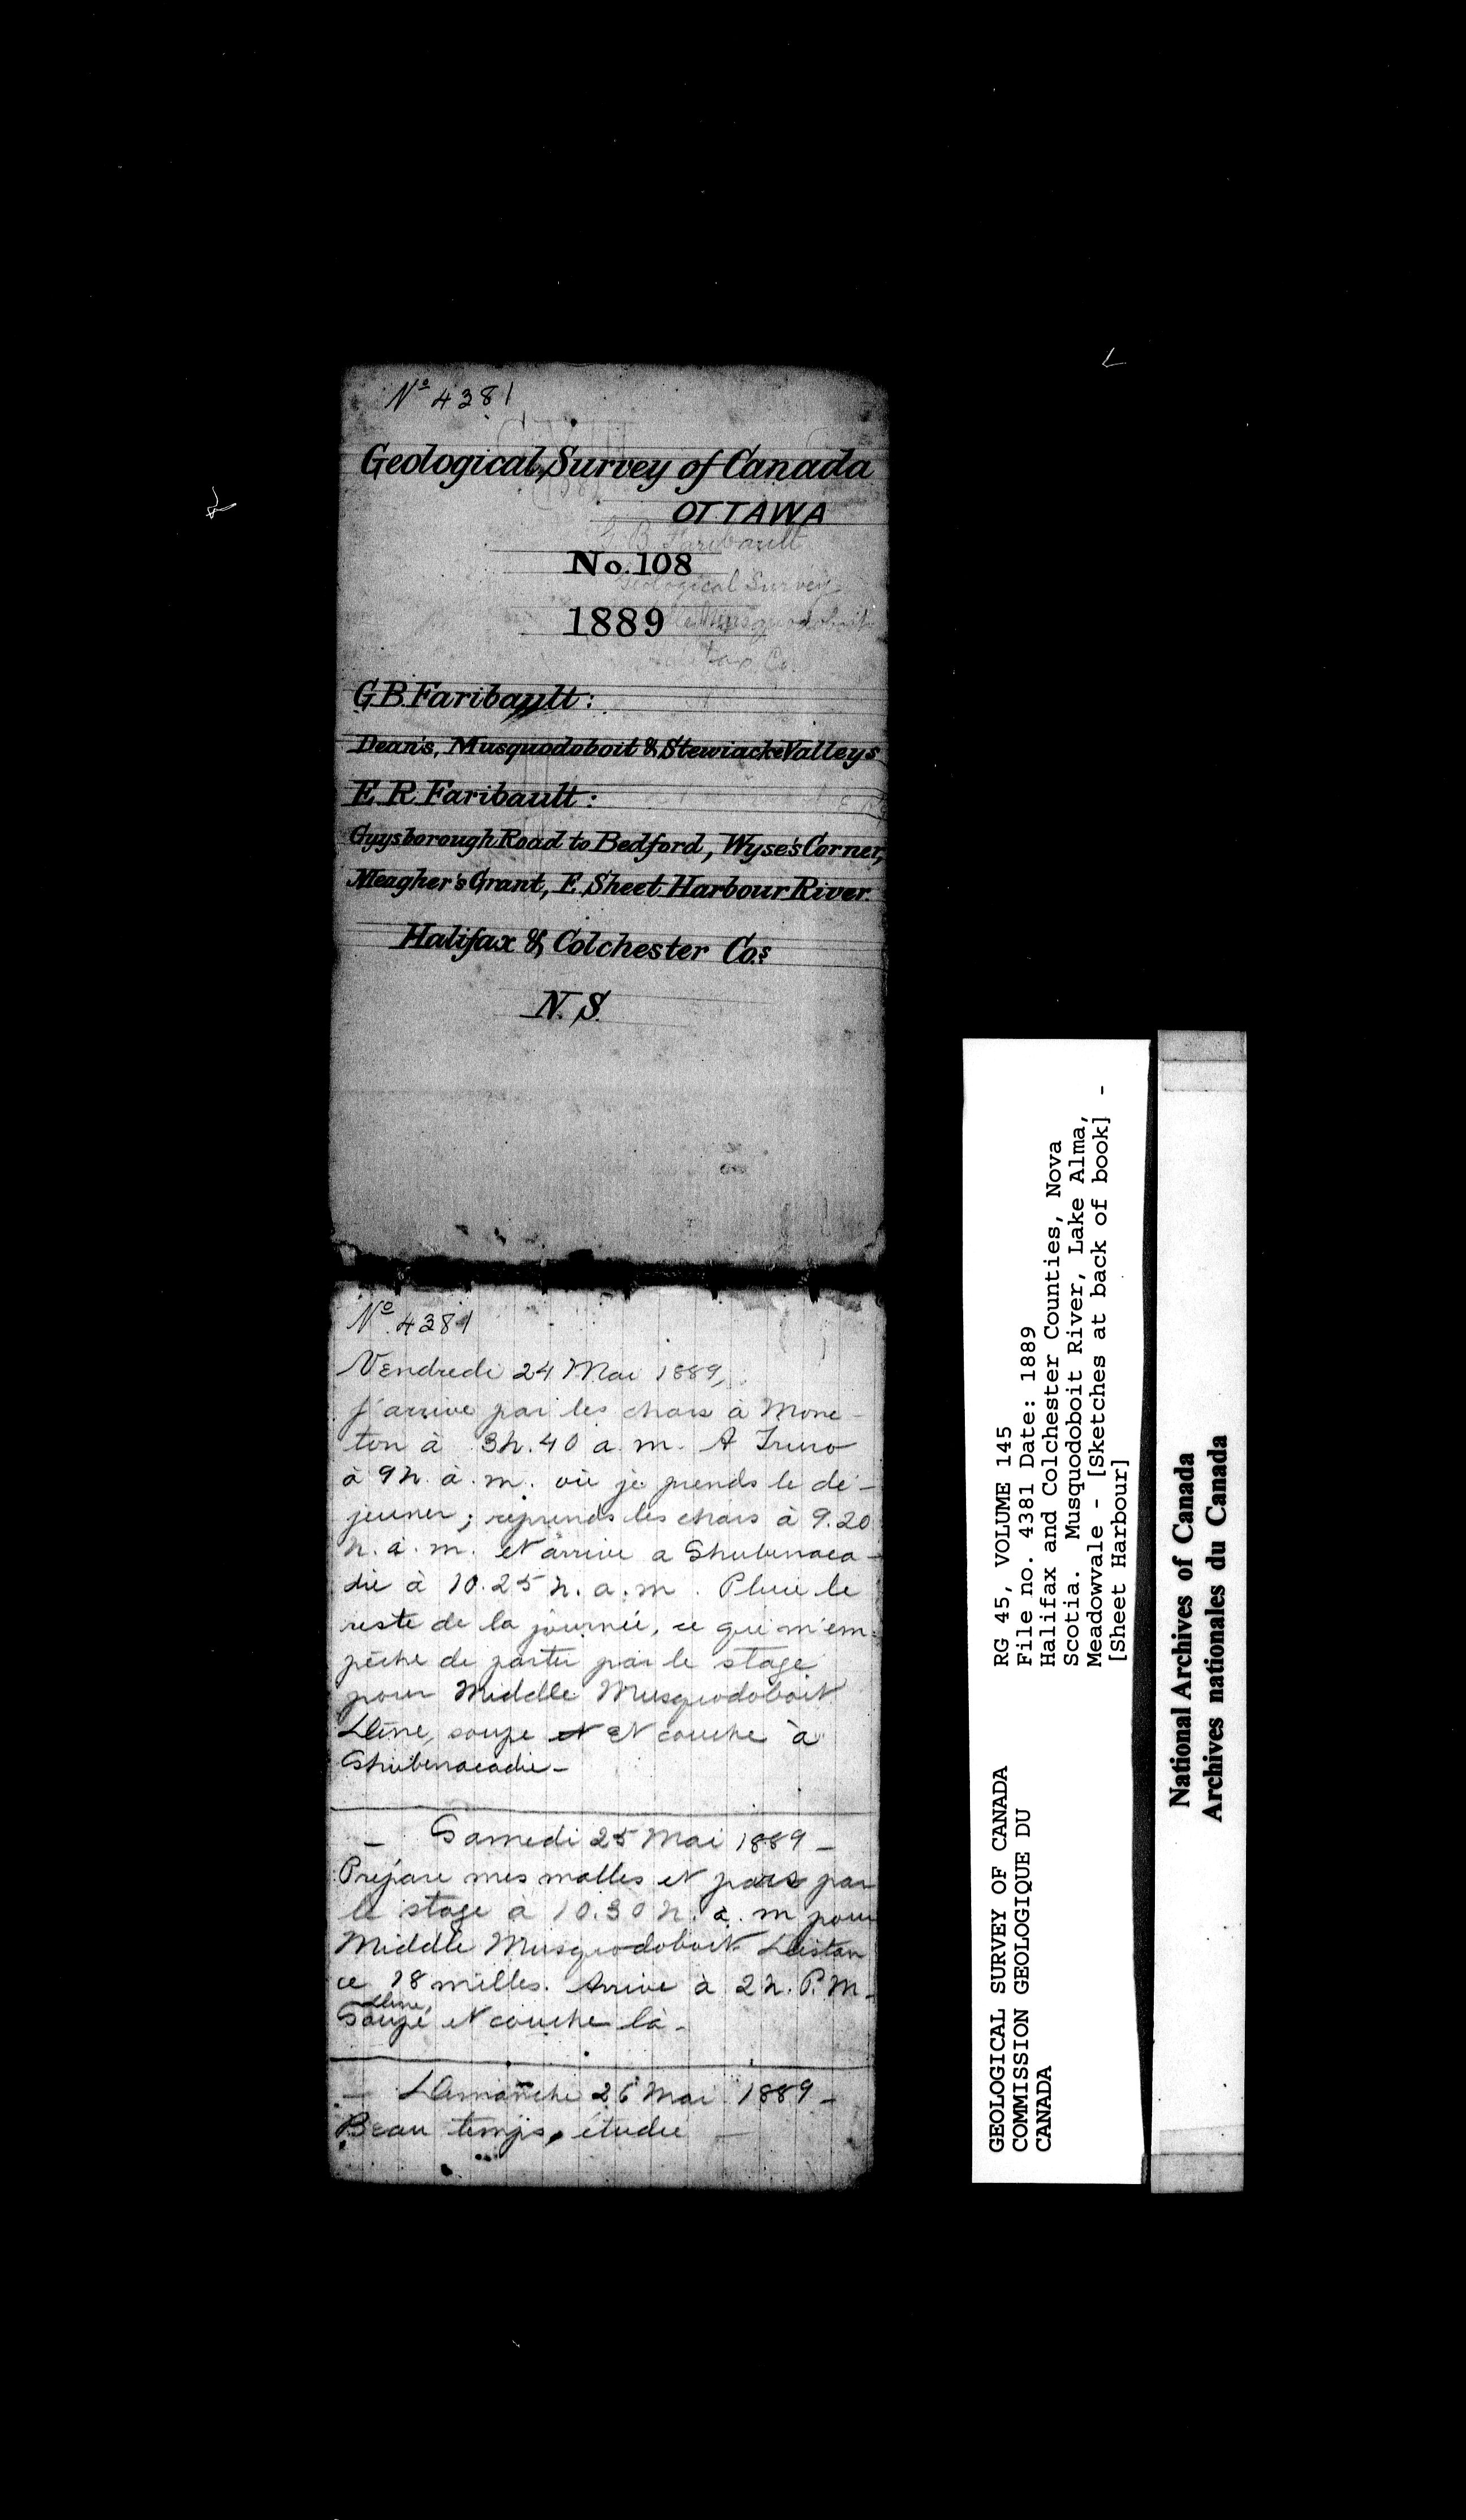 Nº 4381
Geological Survey of Canada
OTTAWA
G B Faribault
No. 108
Geological Survey
1889
Musquodoboit
fax Co.
G.B. Faribault:
Dean's, Musquodoboit & Stewiacke Valleys
E. R. Faribault:
Gyysborough Road to Bedford, Wyse's Corner,
Meagher's Grant, E. Sheet Harbour River.
Halifax & Colchester Cos
N. S.
Nº 4381
Vendredi 24 Mai 1889,
J'arrive par les chars à Monc-
ton à 3h. 40 a. m. A Truro
à 9 h. a. m. où je prends le dé-
jeuner ; reprends les chars à 9.20
h. a. m. et arrive a Shubenaca-
die à 10.25 h. a. m. Pluie le
reste de la journée, ce qui m'em-
pêche de partir par le stage
pour Middle Musquodoboit
Dine, soupe et et couche à
Shubenacadie -
- Samedi 25 Mai 1889 -
Prépare mes malles et pars par
le stage à 10.30 h. a. m pour
Middle Musquodoboit Distan
ce 18 milles. Arrive à 2 h. P. M -
Dine,
Soupe et couche là -
- Dimanche 26 Mai 1889 -
Beau temps, étudie -
GEOLOGICAL SURVEY OF CANADA
COMMISSION GEOLOGIQUE DU
CANADA
RG 45, VOLUME 145
File no. 4381 Date: 1889
Halifax and Colchester Counties, Nova
Scotia. Musquodoboit River, Lake Alma,
Meadowvale - [Sketches at back of book] -
[Sheet Harbour]
National Archives of Canada
Archives nationales du Canada